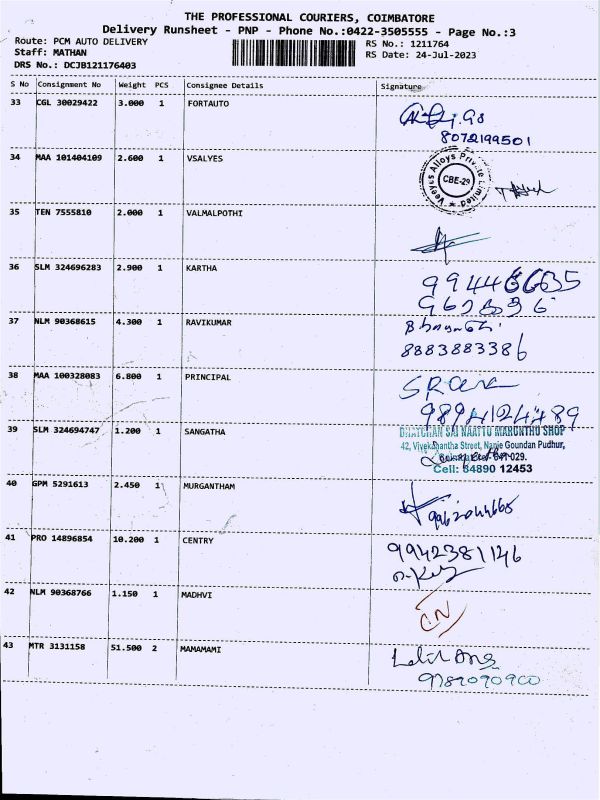 THE PROFESSIONAL COURIERS, COIMBATORE
Delivery Runsheet - PNP - Phone No.:0422-3505555 - Page No.:3
Route: PCM AUTO DELIVERY RS No.: 1211764
Staff: MATHAN RS Date: 24-Jul-2023
DRS No.: DCJB121176403
S No Consignment No Weight PCS Consignee Details Signature
33 CGL 30029422 3.000 1 FORTAUTO
8072199501
34 MAA 101404109 2.600 1 VSALYES
Veeyus Alloys Private Limited
CBE-29
35 TEN 7555810 2.000 1 VALMALPOTHI
36 SLM 324696283 2.900 1 KARTHA
37 NLM 90368615 4.300 1 RAVIKUMAR
8883883386
38 MAA 100328083 6.800 1 PRINCIPAL
9894124489
39 SLM 324694747 1.200 1 SANGATHA
SAI NAATTU MARUNTHU SHOP
42, Vivekanantha Street, Nanje Goundan Pudhur,
641 029.
Cell: 84890 12453
40 GPM 5291613 2.450 1 MURGANTHAM
41 PRO 14896854 10.200 1 CENTRY
9942381146
42 NLM 90368766 1.150 1 MADHVI
43 MTR 3131158 51.500 2 MAMAMAMI
9789090900